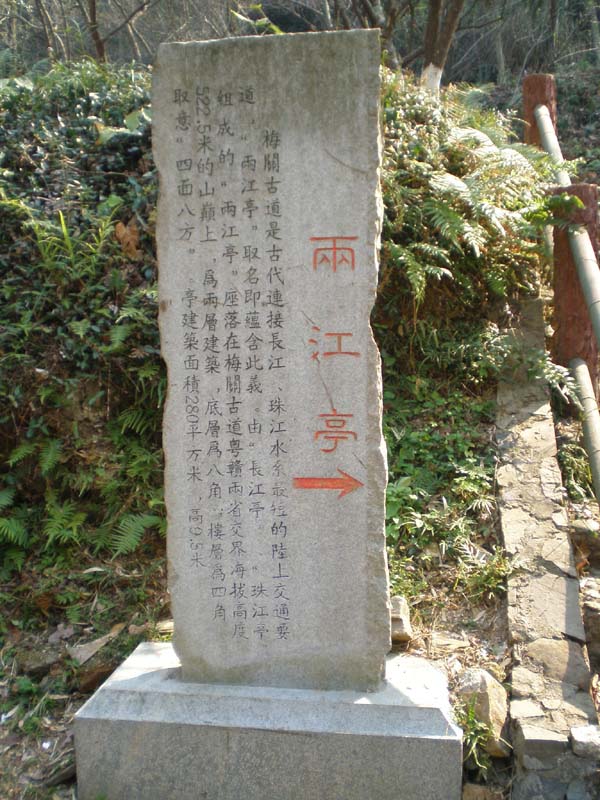 兩江亭
梅關古道是古代連接長江、珠江水系最短的陸上交通要
道，“兩江亭”取名即蘊含此義。由“長江亭”“珠江亭”
組成的“兩江亭”座落在梅關古道粤贛兩省交界海拔高度
522.5米的山巔上，爲兩層建築，底層爲八角，樓層爲四角
取意“四面八方”，亭建築面積280平方米，高9.5米